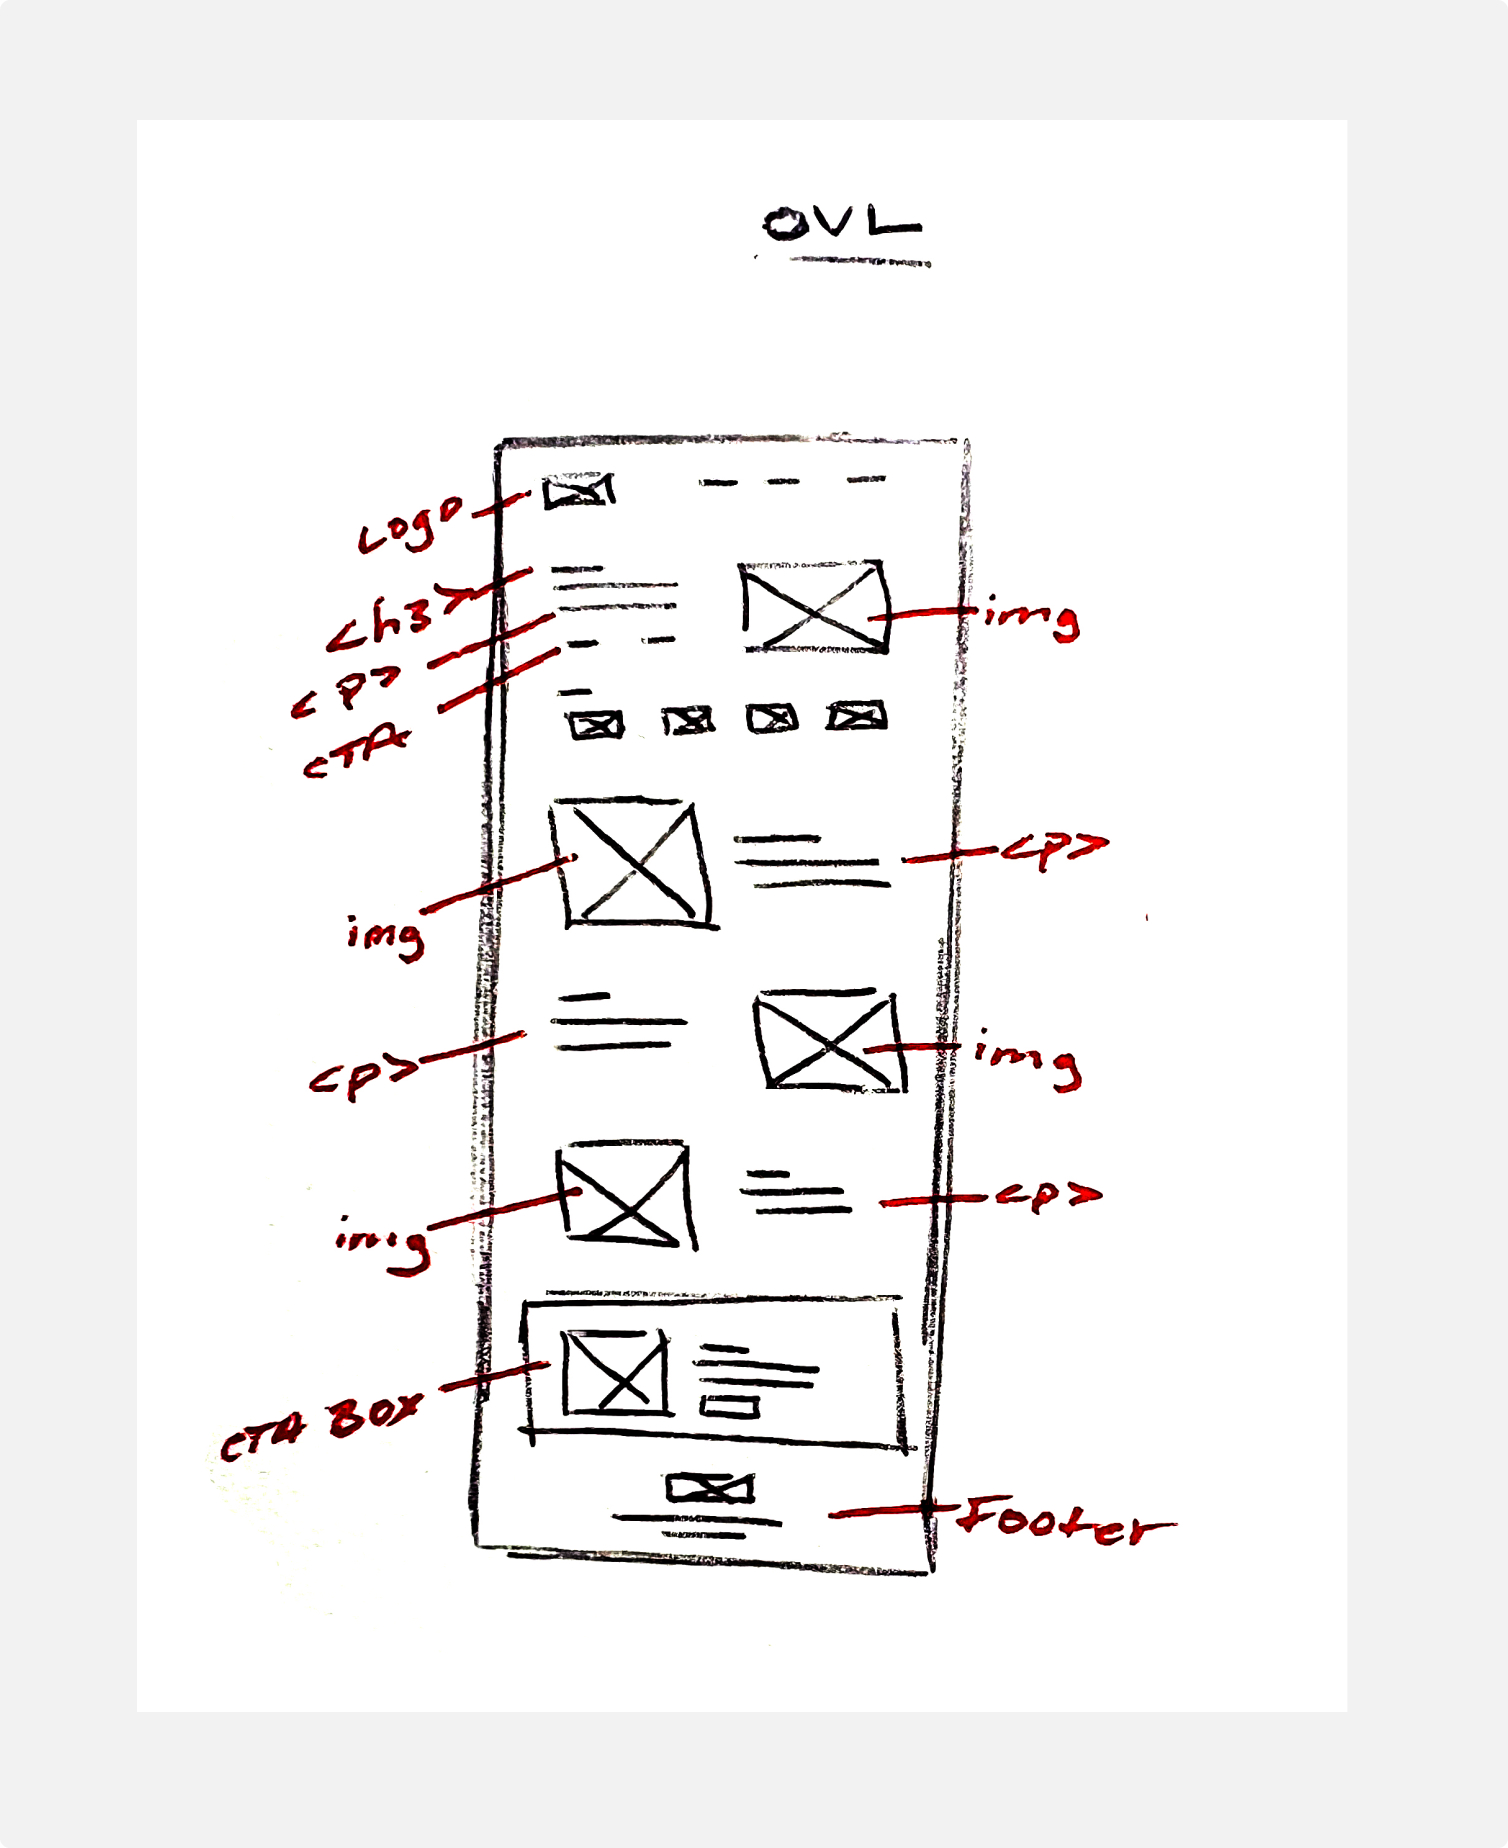 OVL
Logo
<h3>
<p>
CTA
img
img
<p>
<p>
img
img
<p>
CTA BOX
Footer